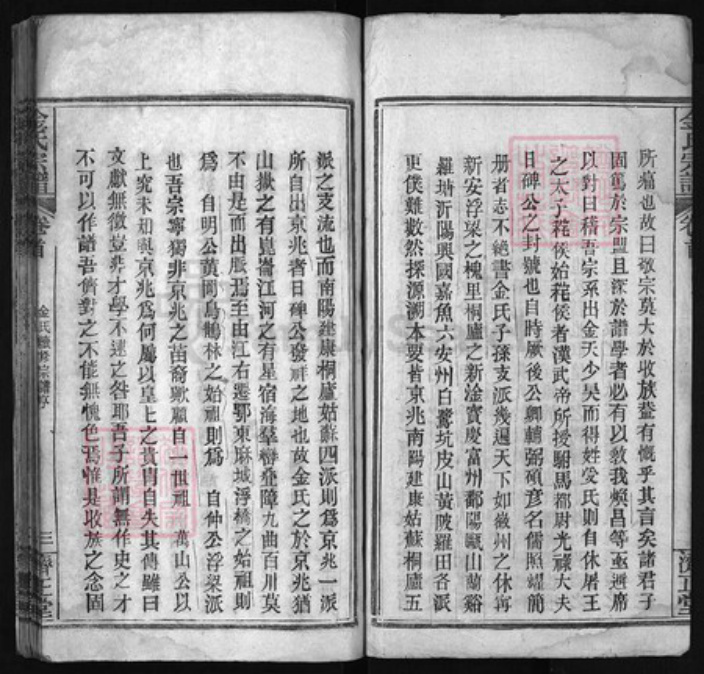 所痛也故曰敬宗莫大於收族葢有慨乎其言矣諸君子
固篤於宗盟且深於譜學者必有以敎我煥昌等亟避席
以對曰稽吾宗系出金天少昊而得姓受氏則自休屠王
之太子秺侯始秺侯者漢武帝所授駙馬都尉光祿大夫
日磾公之封號也自時厥後公卿輔弼碩彥名儒照耀簡
册者志不絕書金氏子孫支派幾遍天下如徽州之休寗
新安浮梁之槐里桐廬之新淦寶慶富州鄱陽甌山蘭谿
羅塘沂陽興國嘉魚六安州白鷺坑皮山黃陂羅田各派
更僕難數然探源溯本要皆京兆南陽建康姑蘇桐廬五
派之支流也而南陽建康桐廬姑蘇四派則爲京兆一派
所自出京兆者日磾公發祥之地也故金氏之於京兆猶
山嶽之有崑崙江河之有星宿海羣巒疊障九曲百川莫
不由是而出脈焉至由江右遷鄂東麻城浮橋之始祖則
爲 自明公黃岡烏鵲林之始祖則爲 自仲公浮梁派
也吾宗寧獨非京兆之苗裔歟顧自一世祖 萬山公以
上究未知與京兆爲何屬以皇上之貴冑自失其傳雖曰
文獻無徵豈非才學不逮之咎耶吾子所謂無作史之才
不可以作譜吾儕對之不能無愧色焉惟是收族之念固
金氏宗譜
卷首
金氏續修宗譜序
三
濟正堂
金氏宗譜
卷首
濟正堂